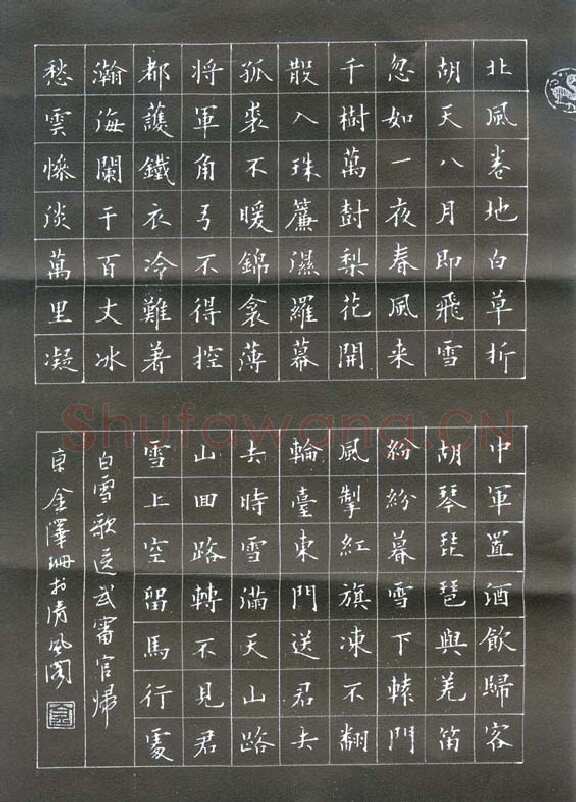 北風卷地白草折
胡天八月即飛雪
忽如一夜春風来
千樹萬尌梨花開
散入珠簾濕羅幕
孤裘不暖錦衾薄
将軍角弓不得控
都護鐵衣冷難著
瀚海闌干百丈冰
愁雲慘淡萬里凝
中軍置酒飲歸客
胡琴琵琶與羌笛
紛紛暮雪下轅門
風掣紅旗凍不翻
輪臺東門送君去
去時雪滿天山路
山回路轉不見君
雪上空留馬行處
白雪歌送武審官歸
京金澤珊书清風閣
Shufawang.CN